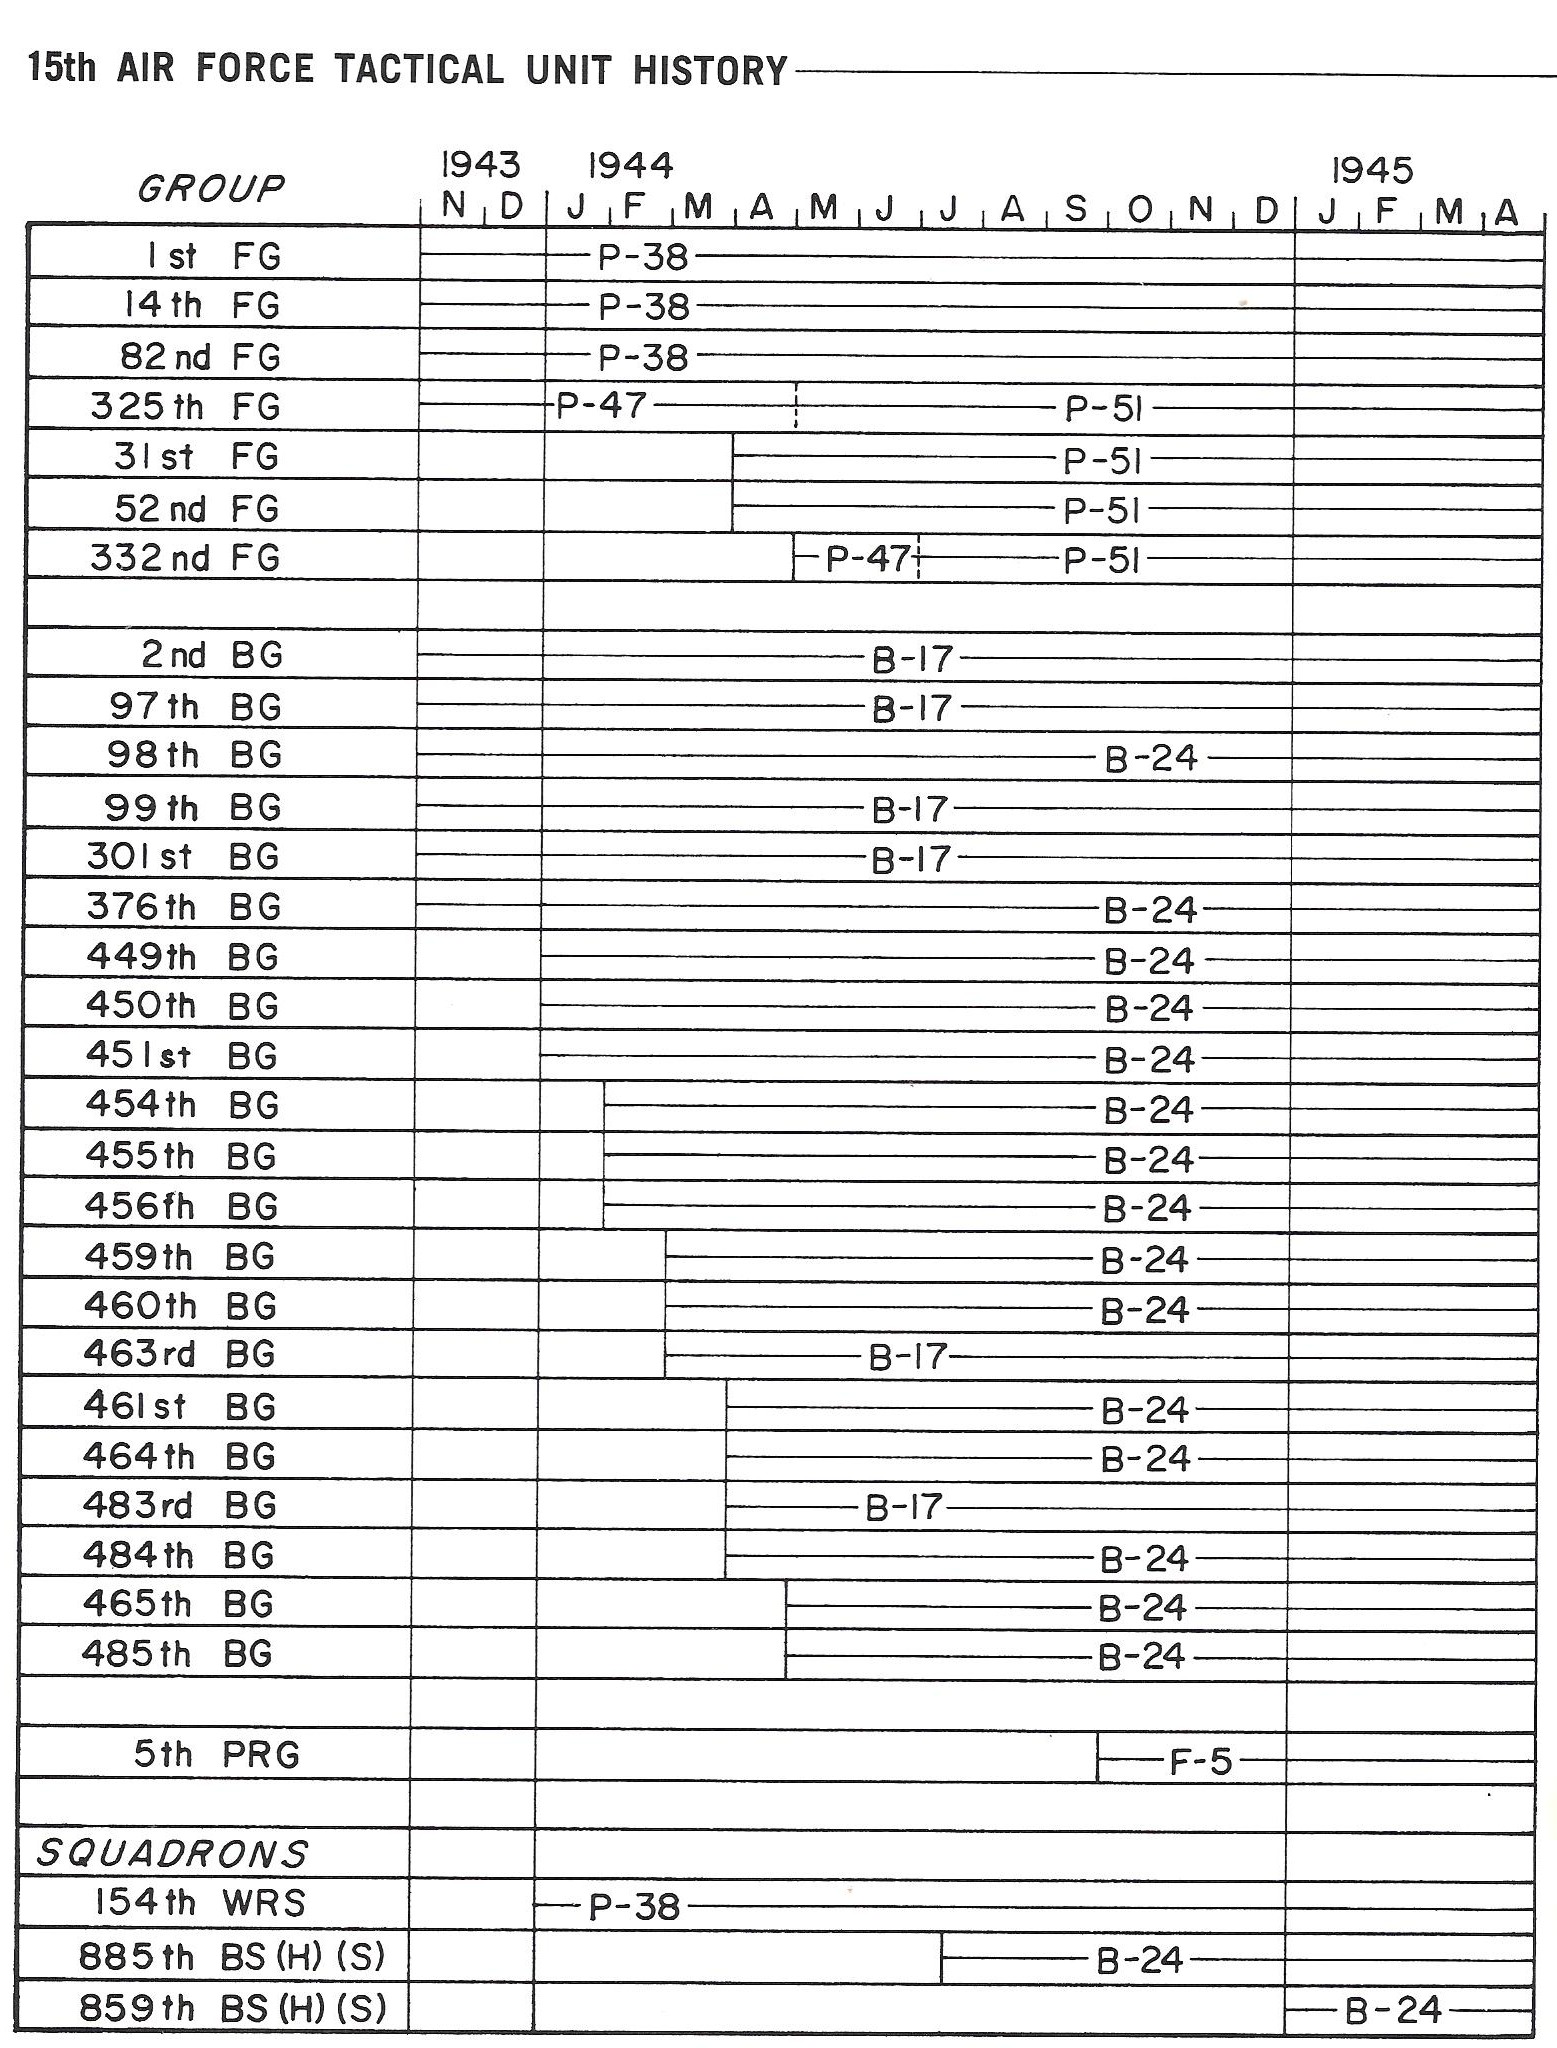 15th AIR FORCE TACTICAL UNIT HISTORY
1943 1944 1945
GROUP N D J F M A M J J A S O N D J F M A
1st FG P-38
14th FG P-38
82nd FG P-38
325th FG P-47 P-51
31st FG P-51
52nd FG P-51
332nd FG P-47 P-51
2nd BG B-17
97th BG B-17
98th BG B-24
99th BG B-17
301st BG B-17
376th BG B-24
449th BG B-24
450th BG B-24
451st BG B-24
454th BG B-24
455th BG B-24
456th BG B-24
459th BG B-24
460th BG B-24
463rd BG B-17
461st BG B-24
464th BG B-24
483rd BG B-17
484th BG B-24
465th BG B-24
485th BG B-24
5th PRG F-5
SQUADRONS
154th WRS P-38
885th BS (H) (S) B-24
859th BS (H) (S) B-24